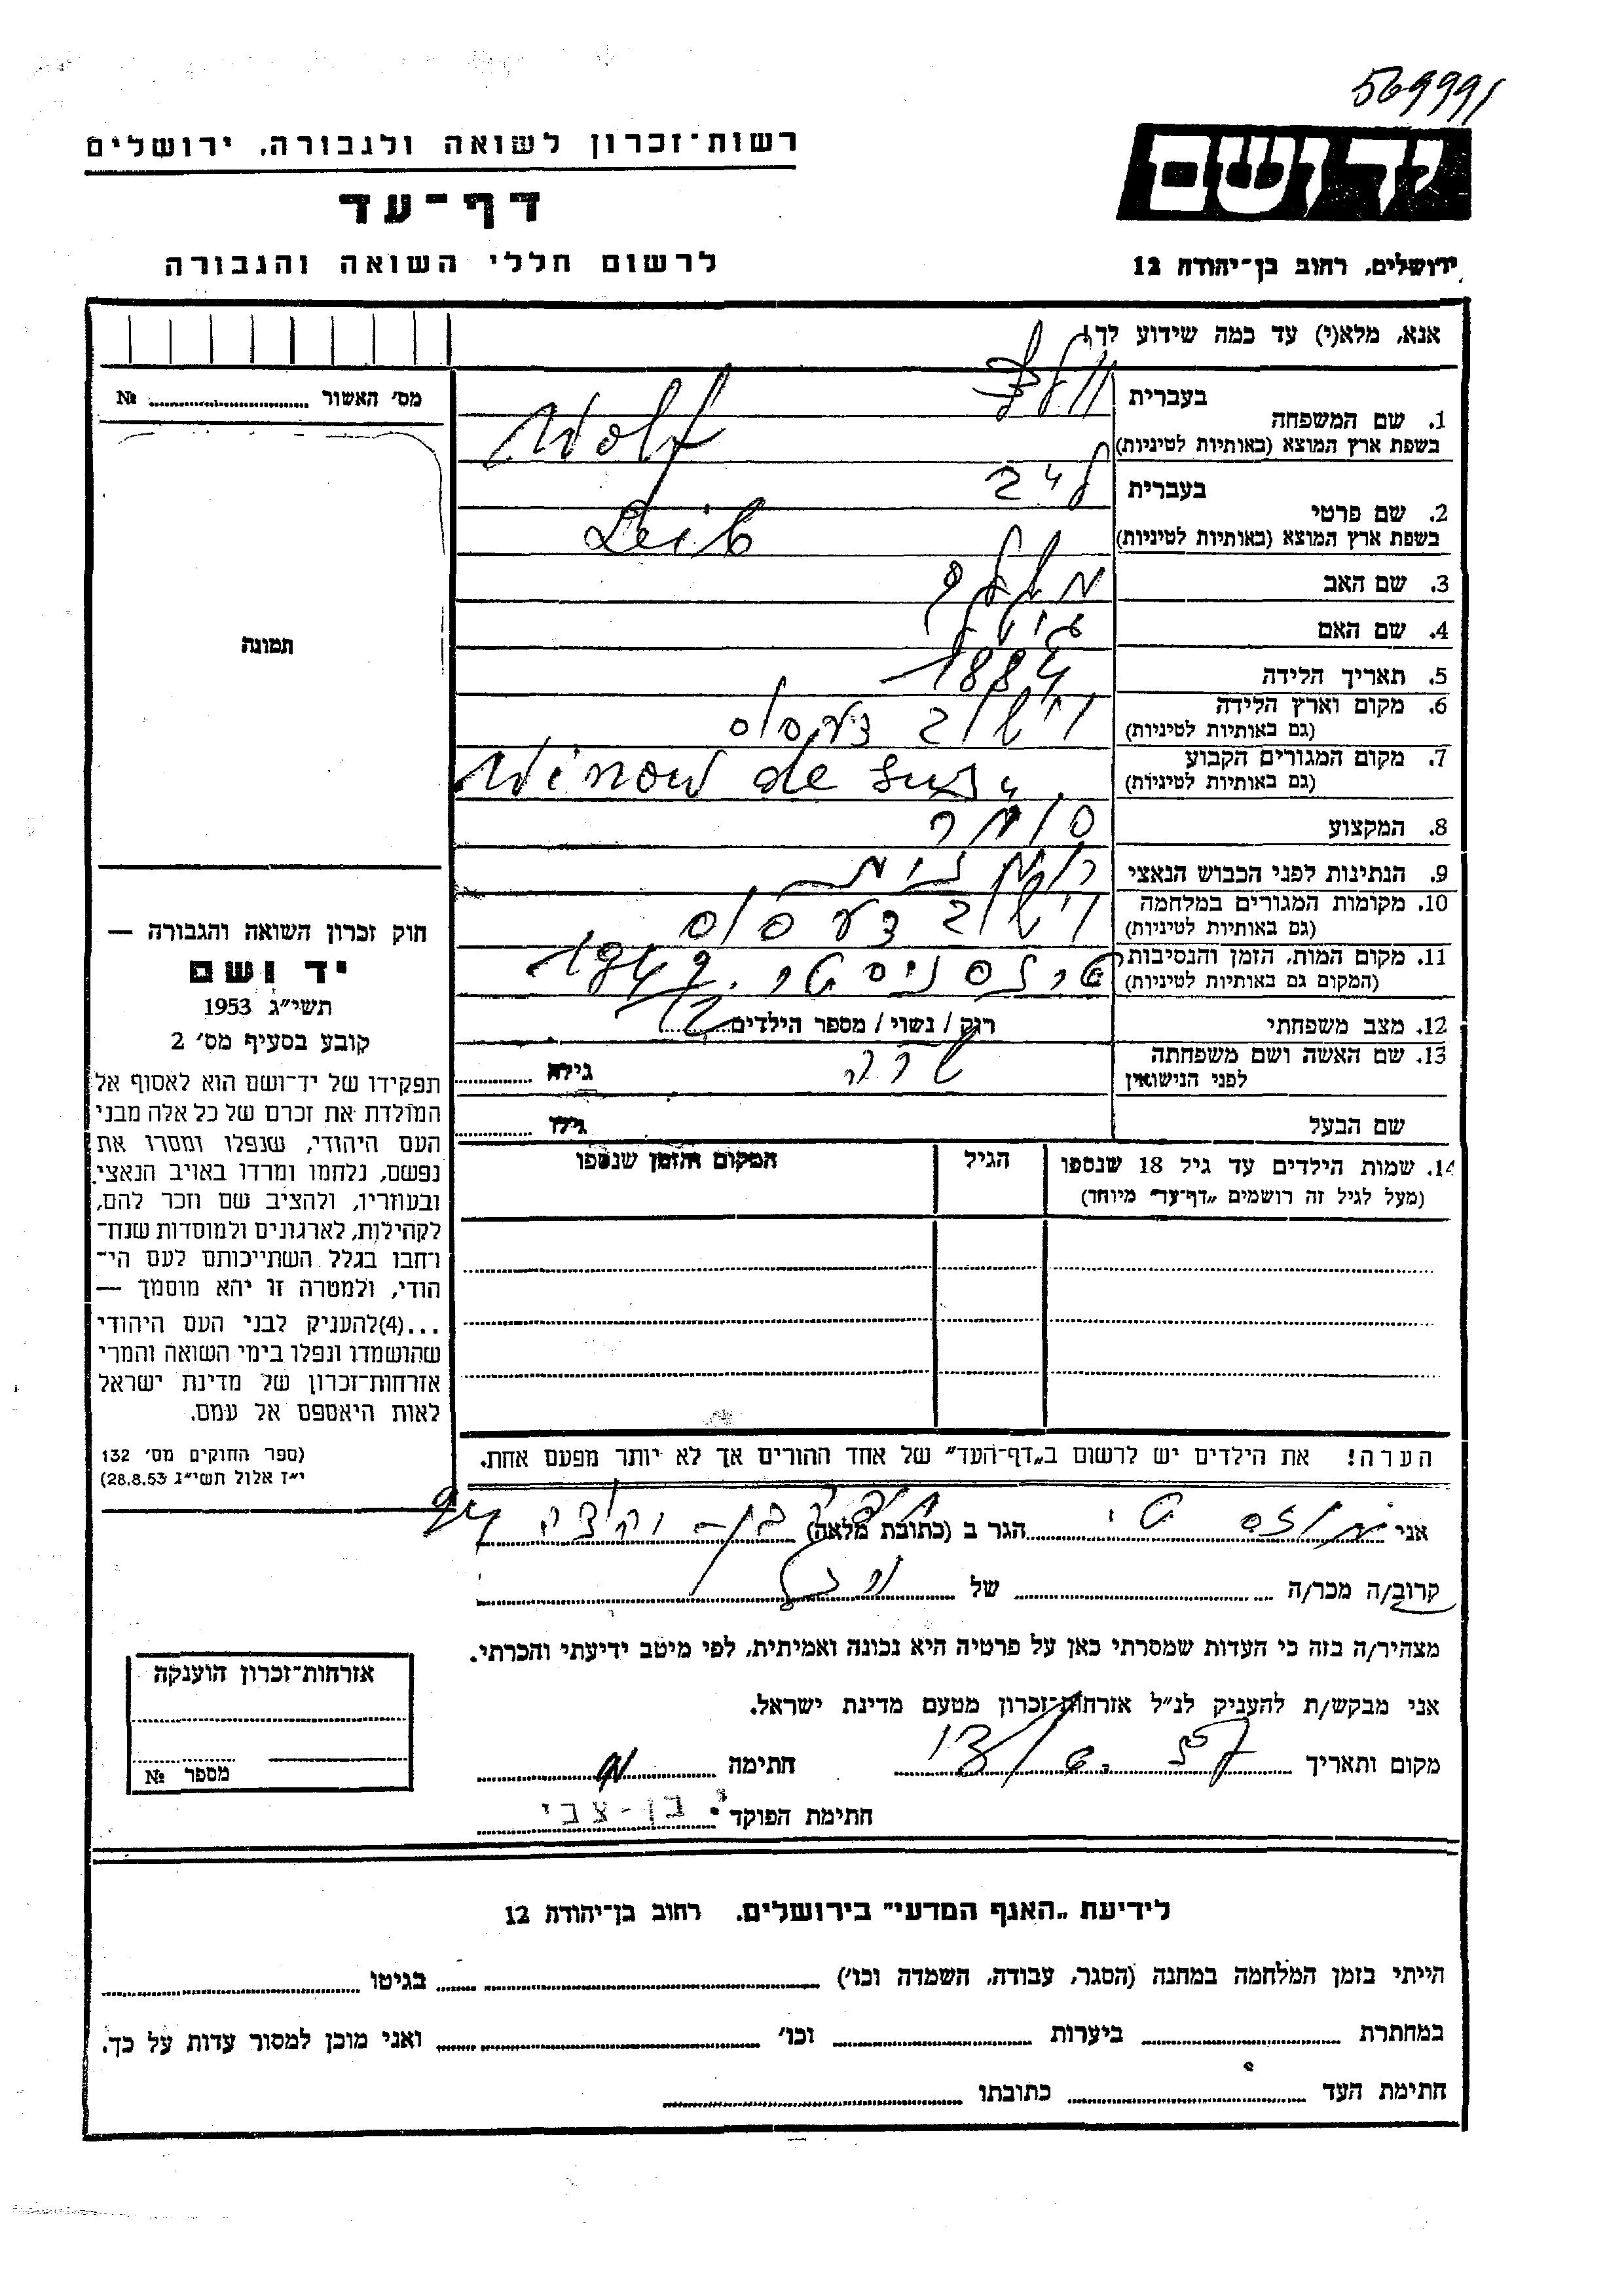 569991
יד ושם
ירושלים, רחוב בן־יהודה 12
רשות־זכרון לשואה ולגבורה, ירושלים
דף־עד
לרשום חללי השואה והגבורה
אנא, מלא(י) עד כמה שידוע לך!
1. שם המשפחה
בעברית וולף
בשפת ארץ המוצא (באותיות לטיניות) Wolf
2. שם פרטי
בעברית ליב
בשפת ארץ המוצא (באותיות לטיניות) Leib
3. שם האב
4. שם האם
5. תאריך הלידה 1884
6. מקום וארץ הלידה
(גם באותיות לטיניות)
7. מקום המגורים הקבוע
(גם באותיות לטיניות) de sus
8. המקצוע סוחר
9. הנתינות לפני הכבוש הנאצי
10. מקומות המגורים במלחמה
(גם באותיות לטיניות)
11. מקום המות, הזמן והנסיבות
(המקום גם באותיות לטיניות)
12. מצב משפחתי רוק / נשוי / מספר הילדים
13. שם האשה ושם משפחתה
לפני הנישואין שרה גילה
שם הבעל גילו
14. שמות הילדים עד גיל 18 שנספו
(מעל לגיל זה רושמים „דף־עד״ מיוחד)
הגיל
המקום והזמן שנספו
הערה! את הילדים יש לרשום ב„דף־העד״ של אחד ההורים אך לא יותר מפעם אחת.
מס׳ האשור №
תמונה
חוק זכרון השואה והגבורה —
יד ושם
תשי״ג 1953
קובע בסעיף מס׳ 2
תפקידו של יד־ושם הוא לאסוף אל
המולדת את זכרם של כל אלה מבני
העם היהודי, שנפלו ומסרו את
נפשם, נלחמו ומרדו באויב הנאצי
ובעוזריו, ולהציב שם וזכר להם,
לקהילות, לארגונים ולמוסדות שנח־
רחבו בגלל השתייכותם לעם הי־
הודי, ולמטרה זו יהא מוסמך —
...(4)להעניק לבני העם היהודי
שהושמדו ונפלו בימי השואה והמרי
אזרחות־זכרון של מדינת ישראל
לאות היאספם אל עמם.
(ספר החוקים מס׳ 132
י״ז אלול תשי״ג 28.8.53)
אני הגר ב (כתובת מלאה)
קרוב/ה מכר/ה של
מצהיר/ה בזה כי העדות שמסרתי כאן על פרטיה היא נכונה ואמיתית, לפי מיטב ידיעתי והכרתי.
אני מבקש/ת להעניק לנ״ל אזרחות־זכרון מטעם מדינת ישראל.
מקום ותאריך חתימה
חתימת הפוקד י. בן-צבי
אזרחות־זכרון הוענקה
מספר №
לידיעת „האגף המדעי״ בירושלים, רחוב בן־יהודה 12
הייתי בזמן המלחמה במחנה (הסגר, עבודה, השמדה וכו׳) בגיטו
במחתרת ביערות וכו׳ ואני מוכן למסור עדות על כך.
חתימת העד כתובתו